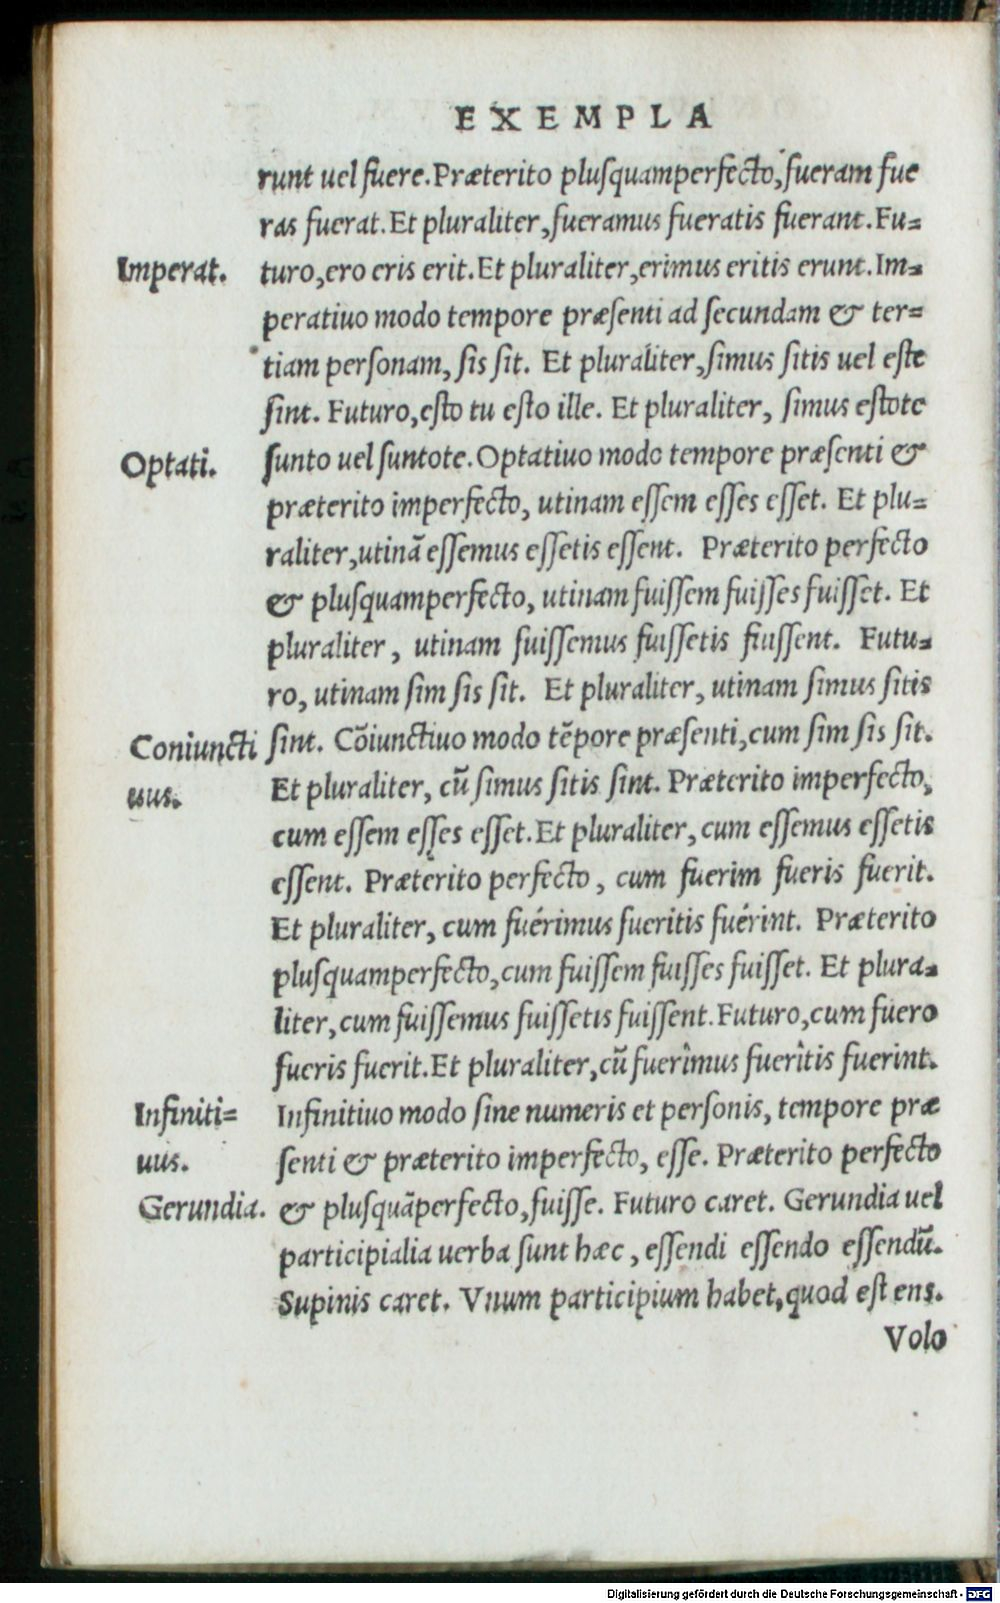 EXEMPLA
runt uel fuere. Præterito plusquamperfecto, fueram fue
ras fuerat. Et pluraliter, fueramus fueratis fuerant. Fu-
Imperat. turo, ero eris erit. Et pluraliter, erimus eritis erunt. Im-
peratiuo modo tempore præsenti ad secundam & ter-
tiam personam, sis sit. Et pluraliter, simus sitis uel este
sint. Futuro, esto tu esto ille. Et pluraliter, simus estote
Optati. sunto uel suntote. Optatiuo modo tempore præsenti &
præterito imperfecto, utinam essem esses esset. Et plu-
raliter, utinã essemus essetis essent. Præterito perfecto
& plusquamperfecto, utinam fuissem fuisses fuisset. Et
pluraliter, utinam fuissemus fuissetis fuissent. Futu-
ro, utinam sim sis sit. Et pluraliter, utinam simus sitis
Coniuncti sint. Cõiunctiuo modo tẽpore præsenti, cum sim sis sit.
uus. Et pluraliter, cũ simus sitis sint. Præterito imperfecto,
cum essem esses esset. Et pluraliter, cum essemus essetis
essent. Præterito perfecto, cum fuerim fueris fuerit.
Et pluraliter, cum fuérimus fueritis fuérint. Præterito
plusquamperfecto, cum fuissem fuisses fuisset. Et plura-
liter, cum fuissemus fuissetis fuissent. Futuro, cum fuero
fueris fuerit. Et pluraliter, cũ fuerîmus fuerîtis fuerint.
Infiniti- Infinitiuo modo sine numeris et personis, tempore præ
uus. senti & præterito imperfecto, esse. Præterito perfecto
Gerundia. & plusquãperfecto, fuisse. Futuro caret. Gerundia uel
participialia uerba sunt hæc, essendi essendo essendũ.
Supinis caret. Vnum participium habet, quod est ens.
Volo
Digitalisierung gefördert durch die Deutsche Forschungsgemeinschaft - DFG